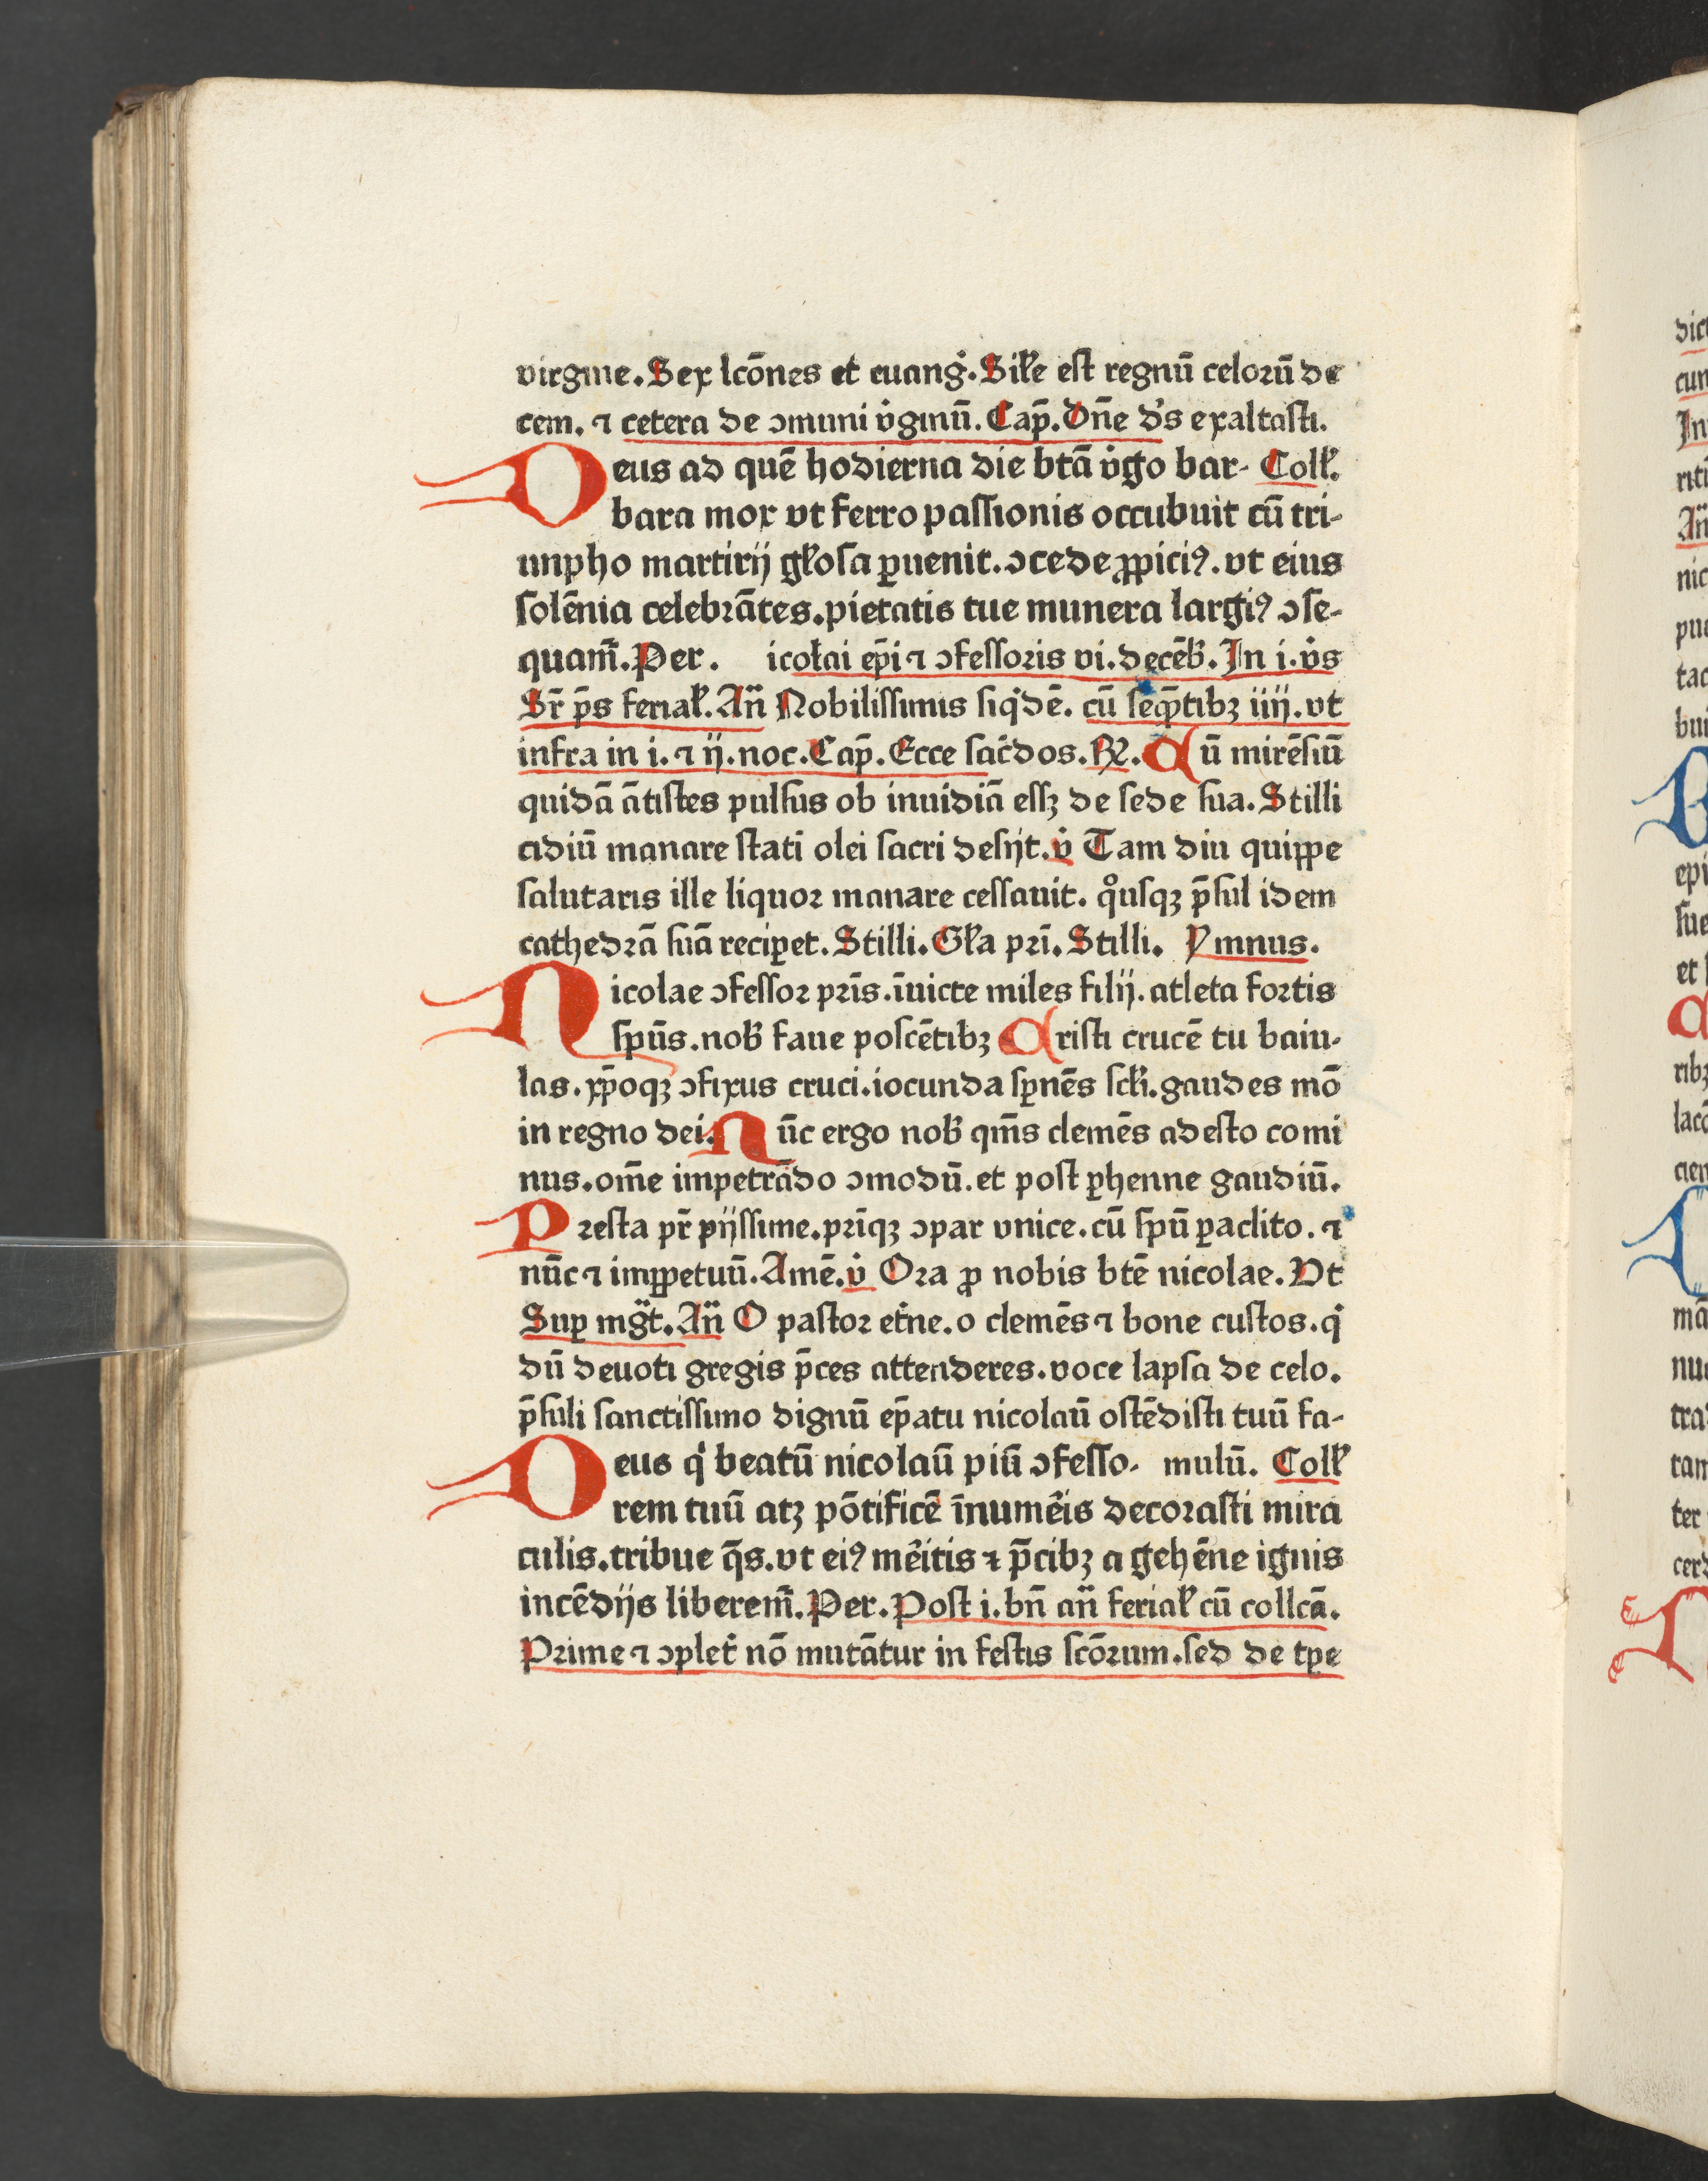 virgine. Sex lcōnes et euangͥ. Siłe est regnū celoꝝū de
cem. ⁊ cetera de ꝯmuni v̓ginū. Cap̄. Dn̄e d̓s exaltasti.
Deus ad quē hodierna die btā v̓go bar- Coll̓.
bara mox vt ferro passionis occubuit cū tri-
unpho martirij gl̓osa ꝑuenit. ꝯcede ꝓpiciꝰ. vt eius
solēnia celebrātes. pietatis tue munera largiꝰ ꝯse-
quam̄. Per. icolai ep̄i ⁊ ꝯfessoris vi. decēb̓. In i. v̓s
Sr̄ p̄s ferial̓. An̄ Nobilissimus siqͥdē. cū seq̄ntibꝫ iiij. vt
infra in i. ⁊ ij. noc. Cap̄. Ecce sac̓dos. ℞. Cū mirēsiū
quidā ātistes pulsus ob inuidiā essꝫ de sede sua. Stilli
cidiū manare stati olei sacri desijt. v̓ Tam diu quippe
salutaris ille liquor manare cessauit. qͦusqꝫ p̄sul idem
cathedrā suā reciꝑet. Stilli. Gl̓a pri̅. Stilli. Ymnus.
Nicolae ꝯfessor pri̅s. i̅uicte miles filij. atleta fortis
spūs. nob̓ faue poscētibꝫ Cristi crucē tu baiu-
las. xp̄oqꝫ ꝯfixus cruci. iocunda sꝑnēs scl̓i. gaudes mō
in regno dei. Nūc ergo nob̓ qm̄s clemēs adesto comi
nus. om̄e impetrādo ꝯmodū. et post ꝑhenne gaudiū.
Presta pr̄ pijssime. pri̅qꝫ ꝯpar vnice. cū spū ꝑaclito. ⁊
nūc ⁊ imꝑpetuū. Amē. v̓ Ora ꝓ nobis btē nicolae. Vt
Suꝑ mg̅t. An̄ O pastor et̓ne. o clemēs ⁊ bone custos. qͥ
dū deuoti gregis p̄ces attenderes. voce lapsa de celo.
p̄suli sanctissimo dignū ep̄atu nicolaū ostēdisti tuū fa-
Deus qͥ beatū nicolaū piū ꝯfesso- mulū. Coll̓
rem tuū atꝫ pōtificē i̅num̓is decorasti mira
culis. tribue q̄s. vt eiꝰ m̓itis ⁊ p̄cibꝫ a gehēne ignis
incēdijs liberem̄. Per. Post i. bn̄ an̄ ferial̓ cū collcā.
Prime ⁊ ꝯplet̓ nō mutātur in festis scōrum. sed de tꝑe